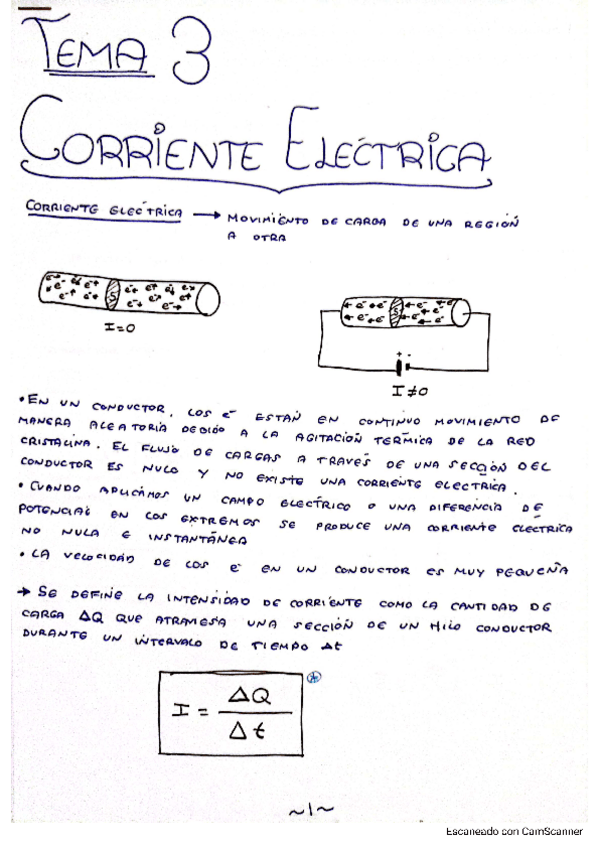 TEMA 3
CORRIENTE ELÉCTRICA
CORRIENTE ELÉCTRICA → MOVIMIENTO DE CARGA DE UNA REGIÓN
A OTRA
I=0
+ -
I≠0
•EN UN CONDUCTOR, LOS e⁻ ESTÁN EN CONTINUO MOVIMIENTO DE
MANERA ALEATORIA DEBIDO A LA AGITACIÓN TÉRMICA DE LA RED
CRISTALINA. EL FLUJO DE CARGAS A TRAVÉS DE UNA SECCIÓN DEL
CONDUCTOR ES NULO Y NO EXISTE UNA CORRIENTE ELÉCTRICA.
•CUANDO APLICAMOS UN CAMPO ELÉCTRICO O UNA DIFERENCIA DE
POTENCIAL EN LOS EXTREMOS SE PRODUCE UNA CORRIENTE ELÉCTRICA
NO NULA E INSTANTÁNEA
• LA VELOCIDAD DE LOS e⁻ EN UN CONDUCTOR ES MUY PEQUEÑA
→ SE DEFINE LA INTENSIDAD DE CORRIENTE COMO LA CANTIDAD DE
CARGA ΔQ QUE ATRAVIESA UNA SECCIÓN DE UN HILO CONDUCTOR
DURANTE UN INTERVALO DE TIEMPO Δt
I = ΔQ / Δt *
~1~
Escaneado con CamScanner